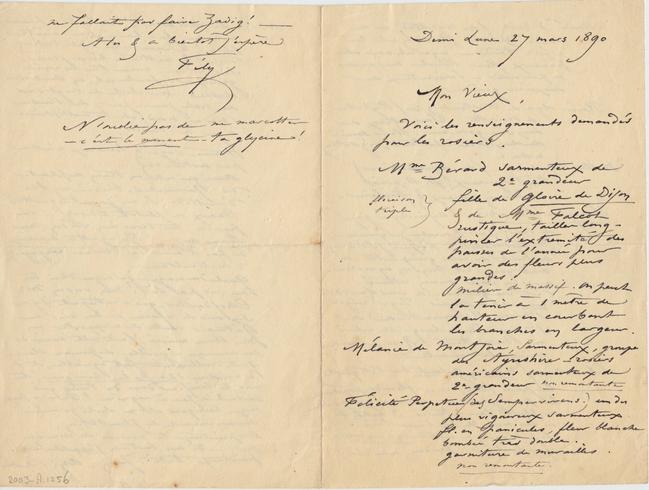 Demi Lune 27 mars 1890
Mon Vieux,
Voici les renseignements demandés
pour les rosiers.
Mme Bérard sarmenteux de
2e grandeur
fille de gloire de Dijon
& de Mme Falcot
floraison
triple
rustique, tailler long-
pincer l'extremité des
pousses de l'année pour
avoir des fleurs plus
grandes.
milieu de massif. on peut
la tenir à 1 mètre de
hauteur en courbant
les branches en largeur.
Mélanie de Montjoie, sarmenteux, groupe
des Ayrshire - rosiers
américains sarmenteux de
2e grandeur non remontante
Félicité Perpetue (des Sempervirens) un des
plus vigoureux sarmenteux
fl. en panicules, fleur blanche
bombée très double.
garniture de murailles.
non remontante.
ne fallait pas faire Zadig!
A toi & a bientôt j'espère
Fély
N'oublie pas de me marcotter
- c'est le moment - ta glycine!
2003-A.1256